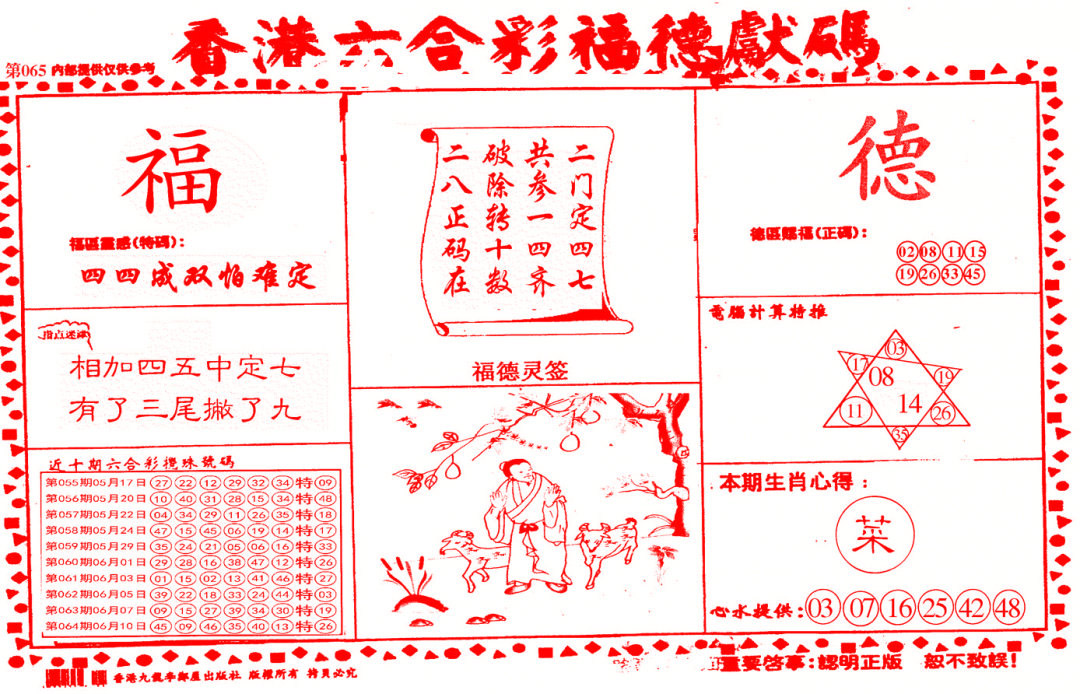 香港六合彩福德獻碼
第065 内部提供仅供参考
福
福區靈感(特碼):
四四成双怕难定
指点迷津
相加四五中定七
有了三尾撇了九
近十期六合彩攪珠號碼
第055期05月17日 27 22 12 29 32 34 特 09
第056期05月20日 10 40 31 28 15 34 特 48
第057期05月22日 04 34 29 11 26 35 特 18
第058期05月24日 47 15 45 06 19 14 特 17
第059期05月29日 35 24 21 05 06 16 特 33
第060期06月01日 29 28 16 38 47 12 特 26
第061期06月03日 01 15 02 13 41 46 特 27
第062期06月05日 39 22 18 33 24 44 特 03
第063期06月07日 09 15 27 39 34 30 特 19
第064期06月10日 45 09 46 35 40 13 特 26
二门定四七
共参一四齐
破除转十数
二八正码在
福德灵签
德
德區賜福(正碼):
02 08 11 15
19 26 33 45
電腦計算特推
03
17
08
19
11
14
26
35
本期生肖心得:
菜
心水提供:03 07 16 25 42 48
香港九龍李鄭屋出版社 版權所有 拷貝必究
重要啓事:認明正版 恕不致誤!